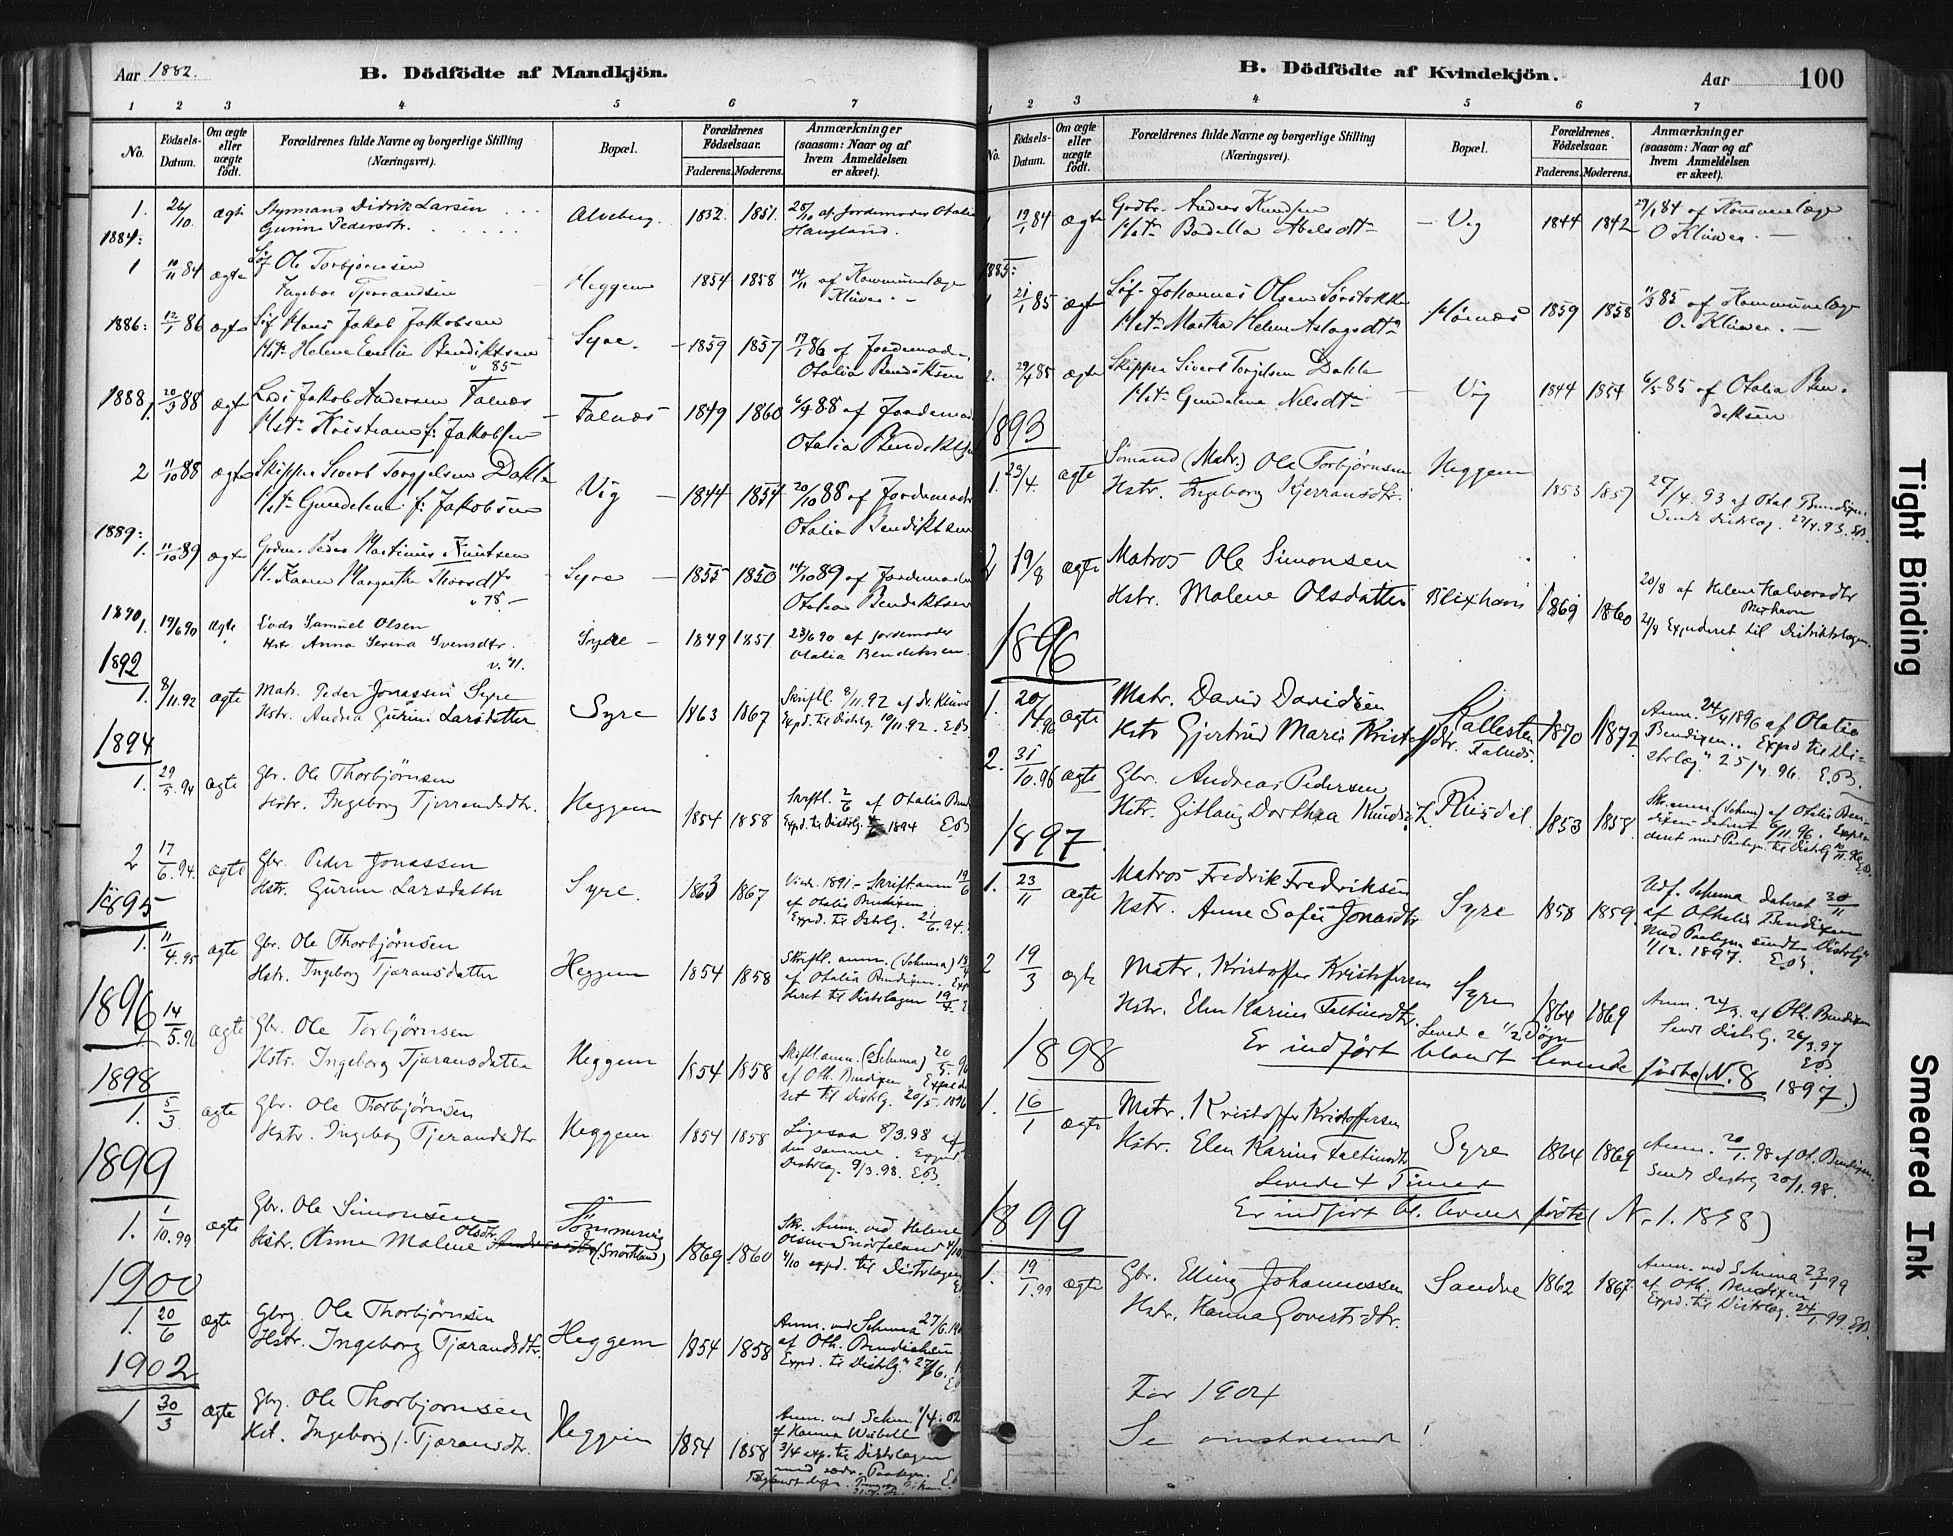 Aar 1882.
B. Dödfödte af Mandkjön.
1 2 3 4 5 6 7
No.
Födsels-Datum.
Om ægte eller uægte födt.
Forældrenes fulde Navne og borgerlige Stilling (Næringsvei).
Bopæl.
Forældrenes Födselsaar.
Faderens. Moderens.
Anmærkninger (saasom: Naar og af hvem Anmeldelsen er skeet).
1. 26/10. ægte Styrmand Didrik Larsen Alveberg. 1832. 1851. 28/10 af Jordemoder Otalia
Gunne Pedersdtr. Haugland.
1884:
1 10/11 84 ægte Ole Torbjørnsen Heggem 1854 1858 14/11 af Kommunelæge
Ingebor Tjerandsen Klüwer
1886: 12/1 86 ægte Hans Jakob Jakobsen Syre. 1859 1857 17/1 86 af Jordemod.
Helene Emilie Bendiktsen Otalia Bendiktsen
" 85
1888 1. 20/3 88 ægte Lods Jakob Andersen Falnes Falnes 1849 1860 6/4 88 af Jordemod
Kristiane f. Jakobsen Otalia Bendiktsen
2 11/10 88 ægte Skipper Sivert Torgjelsen Dahle Vig 1844 1854 20/10 88 af Jordemoder
Gundelene f. Jakobsen Otalia Bendiktsen
1889:
1. 11/10 89 ægte Peder Martinus Knutsen Syre 1855 1850 14/10 89 af Jordemoder
Karen Margrethe Thorsdtr Otalia Bendiktsen
" 78
1890 1. 19/6 90 ægte Samuel Olsen Syre 1849 1851 23/6 90 af Jordemoder
Hstr Anna Serina Svensdtr. Otalia Bendiktsen.
1892
1. 8/11.92 ægte Matr. Peder Jonassen Syre Syre 1863 1867 Skriftl. 8/11.92 af Dr Klüwer
Hstr. Andrea Gurine Larsdatter Expd. til Distrlg. 10/11.92. E.B.
1894
1. 29/5.94 ægte Gbr. Ole Thorbjörnsen Heggem 1854 1858 Skriftl. 2/6 af Otalia Bend
Hstr. Ingeborg Tjerrandsdtr. Expd. til Distrlg. 1894 E.B.
2 17/6.94. ægte Gbr. Peder Jonassen Syre. 1863 1867 Skrift. anm 19/6
Hstr. Gurine Larsdatter af Otalia Bendixen.
Expd. til Distrlg. 21/6.94.
1895
1. 11/4.95 ægte Gbr. Ole Thorbjörnsen Heggem 1854 1858 Skriftl. anm. (Schema)
Hstr. Ingeborg Tjæransdatter af Otalia Bendixen.
til Distrlægen 19/4
1896
14/5.96 ægte Gbr. Ole Torbjörnsen Heggem 1854 1858 Skriftl. anm. (Schema) 20/5.96
Hstr. Ingeborg Tjæransdatter af Oth. Bendixen. Expede
ret til Distrlg. 20/5.1896
1898
1. 5/3 ægte Gbr. Ole Thorbjörnsen Heggem 1854 1858 Ligesaa 8/3.98 af
Hstr. Ingeborg Tjerandsdtr den samme. Expd.
Distrlg. 9/3.98. E.B.
1899
1. 1/10.99 ægte Gbr. Ole Simonsen Tömmering 1869 1860 Skr. Anm. ved Helene
Hstr. Anne Malene Olsdtr. (Snörtland) Olsen Snörteland 4/10
4/10 expd. til Distrlægen
1900
1. 20/6 ægte Gbrg. Ole Thorbjörnsen Heggem 1854 1858 Anm. ved Schema 27/6.190
Hstr. Ingeborg Tjærandsdtr. af Oth. Bendichsen
Expd. til Distrlg. 27/6.
1902
1 30/3 ægte Gbrg. Ole Thorbjornsen Heggem 1854 1858 Anm. ved Schem. 1/4.02
Hst. Ingeborg Tjæransdtr. af Hanna
3/4 exp. til Distrlægen
B. Dödfödte af Kvindekjön.
Aar 100
1 2 3 4 5 6 7
No.
Födsels-Datum.
Om ægte eller uægte födt.
Forældrenes fulde Navne og borgerlige Stilling (Næringsvei).
Bopæl.
Forældrenes Födselsaar.
Faderens. Moderens.
Anmærkninger (saasom: Naar og af hvem Anmeldelsen er skeet).
1 19/1 84 ægte Gadbr. Anders Knudsen Vig 1844 1842 29/1 84 af Kommunelæge
Bodella Abelsdtr O Klüwer.
1885:
1 21/1 85 ægte Johannes Olsen Sørstokke 1859 1858 11/3 85 af Kommunelæge
Martha Helene Aslagsdtr O. Klüwer.
2. 29/4 85 ægte Skipper Sivert Torjelsen Dahle Vig 1844 1854 6/5 85 af Otalia Ben-
Gundelene Nilsdtr diktsen
1893
1. 23/4. ægte Sömand (Matr.) Ole Torbjörnsen Heggem 1853 1857 27/4.93 af Otal. Bendixen
Hstr. Ingeborg Kjerransdtr. Sendt Distrlæg. 27/4.93. E.B.
2 19/8 ægte Matros Ole Simonsen Blixhavn 1869 1860 20/8 af Helene Halvorsdtr
Hstr. Malene Olsdatter Blixhavn
21/8 Expederet til Distriktslægen
1896
1. 20/4.96 ægte Matr. David Davidsen Kallesten Falnes. 1870 1872 Anm. 24/4 1896 af Otalia
Hstr Gjertrud Marie Kristoffdtr. Bendixen. Expd til Di-
strlæg. 25/4.96. E.B.
2. 31/10.96 ægte Gbr. Andreas Pedersen 1853 1858 Skr. anm. (Schema) af Otalia Ben-
Hstr. Gitlaug Dorthea Knudsd. dixen dateret 6/11.96. Expe-
deret med Paategn. til Distrlg
1897
1. 23/11 ægte Matros Fredrik Fredriksen Syre 1858 1859. Udf. Schema dateret 30/11
Hstr. Anne Sofie Jonasdtr af Othalia Bendixen
Med Paategn. sendt Distrlg
1/12.1897. E.B.
2 19/3 ægte Matr. Kristoffer Kristoffersen Syre 1864 1869 Anm. 24/3. af Oth. Bendixen
Hstr. Elen Karine Feltinsdtr. Levede c 1/2 Døgn Sendt Distrlg. 26/3.97
Er indført blandt levende fødte (N. 8 1897.) E.B.
1898
1. 16/1 ægte Matr. Kristoffer Kristoffersen Syre 1864 1869 Anm. 20/1.98 af Ot. Bendixen.
Hstr. Elen Karine Feltinsdtr Sendt Distrlg 20/1.98.
Levede 4 Timer
Er indført bl. levende fødte (N. 1. 1898)
1899
1. 19/1.99 ægte Gbr. Elling Johannessen Sandve 1862 1867. Anm. ved Schema 23/1 99
Hstr. Hanna Govertsdtr. af Oth. Bendixen
Expd. til Distrlg. 24/1.99. E.B.
For 1904
Se omstaaende!
Tight Binding
Smeared Ink